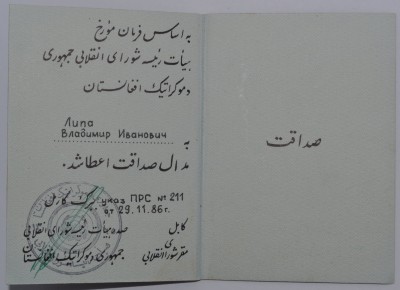 به اساس فرمان مؤرخ
هیأت رئیسه شورای انقلابی جمهوری
دموکراتیک افغانستان
Липа
Владимир Иванович
به
مدال صداقت اعطا شد.
ببرک کارمل
указ ПРС № 211
от 29.11.86г.
کابل
صدر هیأت رئیسه شورای انقلابی
مقر شورای انقلابی
جمهوری دموکراتیک افغانستان
صداقت